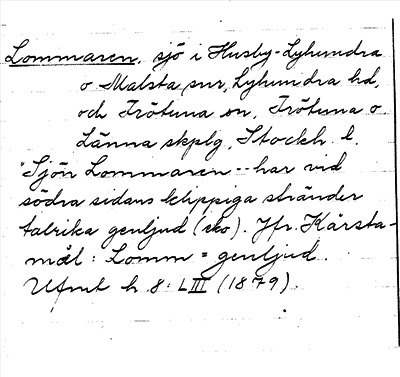 Lommaren, sjö i Husby-Lyhundra
o Malsta snr, Lyhundra hd,
och Frötuna sn, Frötuna o
Länna skplg, Stockh. l.
"Sjön Lommaren -- har vid
södra sidans klippiga stränder
talrika genljud (eko). Jfr. Kårsta-
mål: Lomm = genljud.
Ufmt h 8: LIII (1879).